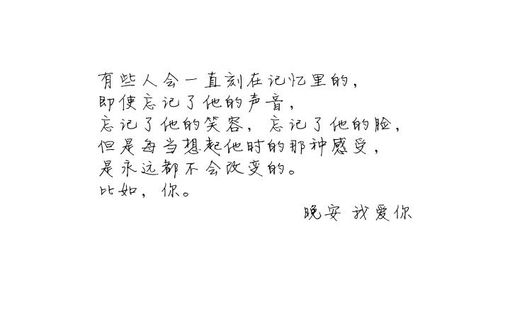 有些人会一直刻在记忆里的，
即使忘记了他的声音，
忘记了他的笑容，忘记了他的脸，
但是每当想起他时的那种感受，
是永远都不会改变的。
比如，你。
晚安 我爱你